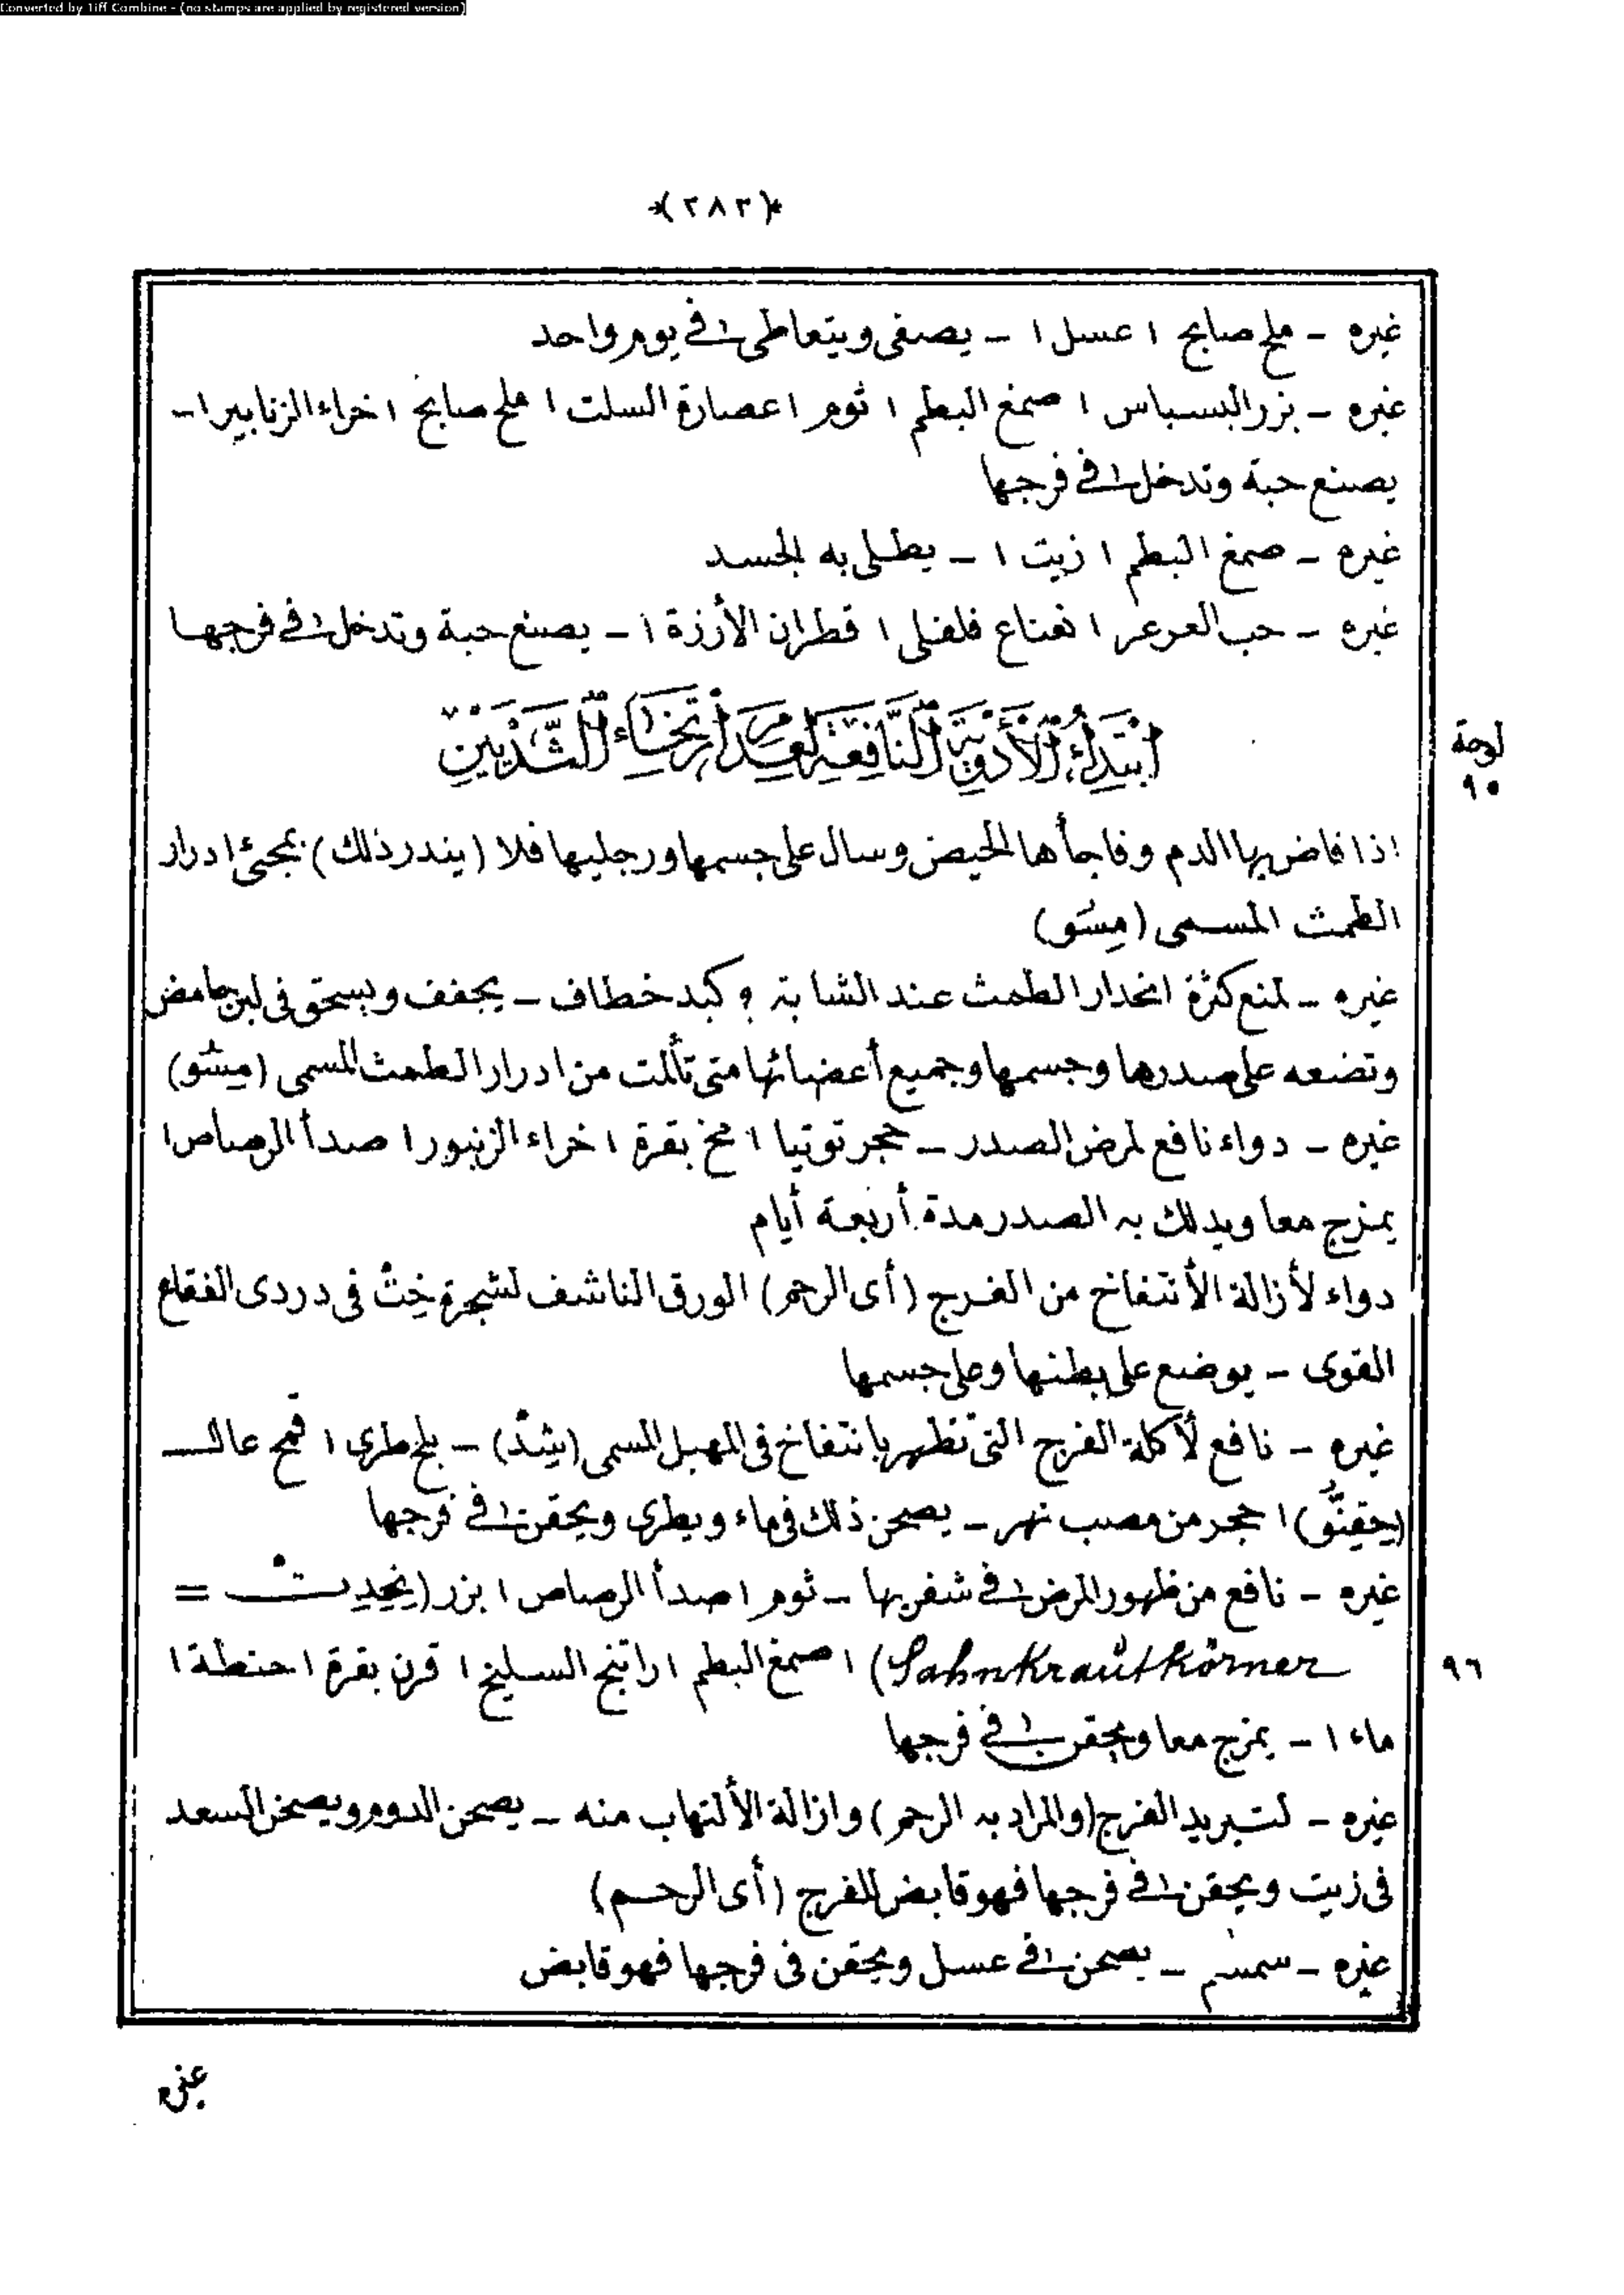 Converted by Tiff Combine - (no stamps are applied by registered version)
*(٢٨٣)*
غيره - ملح صابح ١ عسل ١ - يصفى ويتعاطى ١ في يوم واحد
غيره - بزر البسباس ١ صمغ البطم ١ ثوم ١ عصارة السلت ١ ملح صابح ١ خراء الزنابير ١ -
يصنع حبة وتدخل ١ في فرجها
غيره - صمغ البطم ١ زيت ١ - يطلى به الجسد
غيره - حب العرعر ١ نعناع فلفلى ١ قطران الأرزة ١ - يصنع حبة وتدخل ١ في فرجها
لوحة ٩٥
ابْتِدَاءُ الْأَدْوِيَةِ النَّافِعَةِ لِعَدَمِ ارْتِخَاءِ الثَّدْيَيْنِ
اذا فاض بها الدم وفاجأها الحيض وسال على جسمها ورجليها فلا (يندر ذلك) بمجئ ادرار
الطمث المسمى (مِسَو)
غيره - لمنع كثرة انحدار الطمث عند الشابة ؟ كبد خطاف - يجفف ويسحق فى لبن حامض
وتضعه على صدرها وجسمها وجميع أعضائها متى تألمت من ادرار الطمث المسمى (مِسَو)
غيره - دواء نافع لمرض الصدر - حجر توتيا ١ مخ بقرة ١ خراء الزنبور ١ صدأ الرصاص ١
يمزج معا ويدلك به الصدر مدة أربعة أيام
دواء لأزالة الأنتفاخ من الفرج (أى الرحم) الورق الناشف لشجرة خِتْ فى دردى الفقاع
القوى - يوضع على بطنها وعلى جسمها
غيره - نافع لأكلة الفرج التى تظهر بانتفاخ فى المهبل المسمى (يشد) - بلح طرى ١ قمح عال
١ حجر من مصب نهر - يصحن ذلك فى ماء ويطرى ويحقن ١ في فرجها
غيره - نافع من ظهور المرض ١ في شفريها - ثوم ١ صدأ الرصاص ١ بزر =
٩٦
Sahnkrautkörner) ١ صمغ البطم ١ راتينج السليخ ١ قرن بقرة ١ حنطة ١
ماء ١ - يمزج معا ويحقن ١ في فرجها
غيره - لتبريد الفرج (والمراد به الرحم) وازالة الألتهاب منه - يصحن الدوم ويصحن السعد
فى زيت ويحقن ١ في فرجها فهو قابض للفرج (أى الرحم)
غيره - سمسم - يصحن ١ في عسل ويحقن فى فرجها فهو قابض
غيره